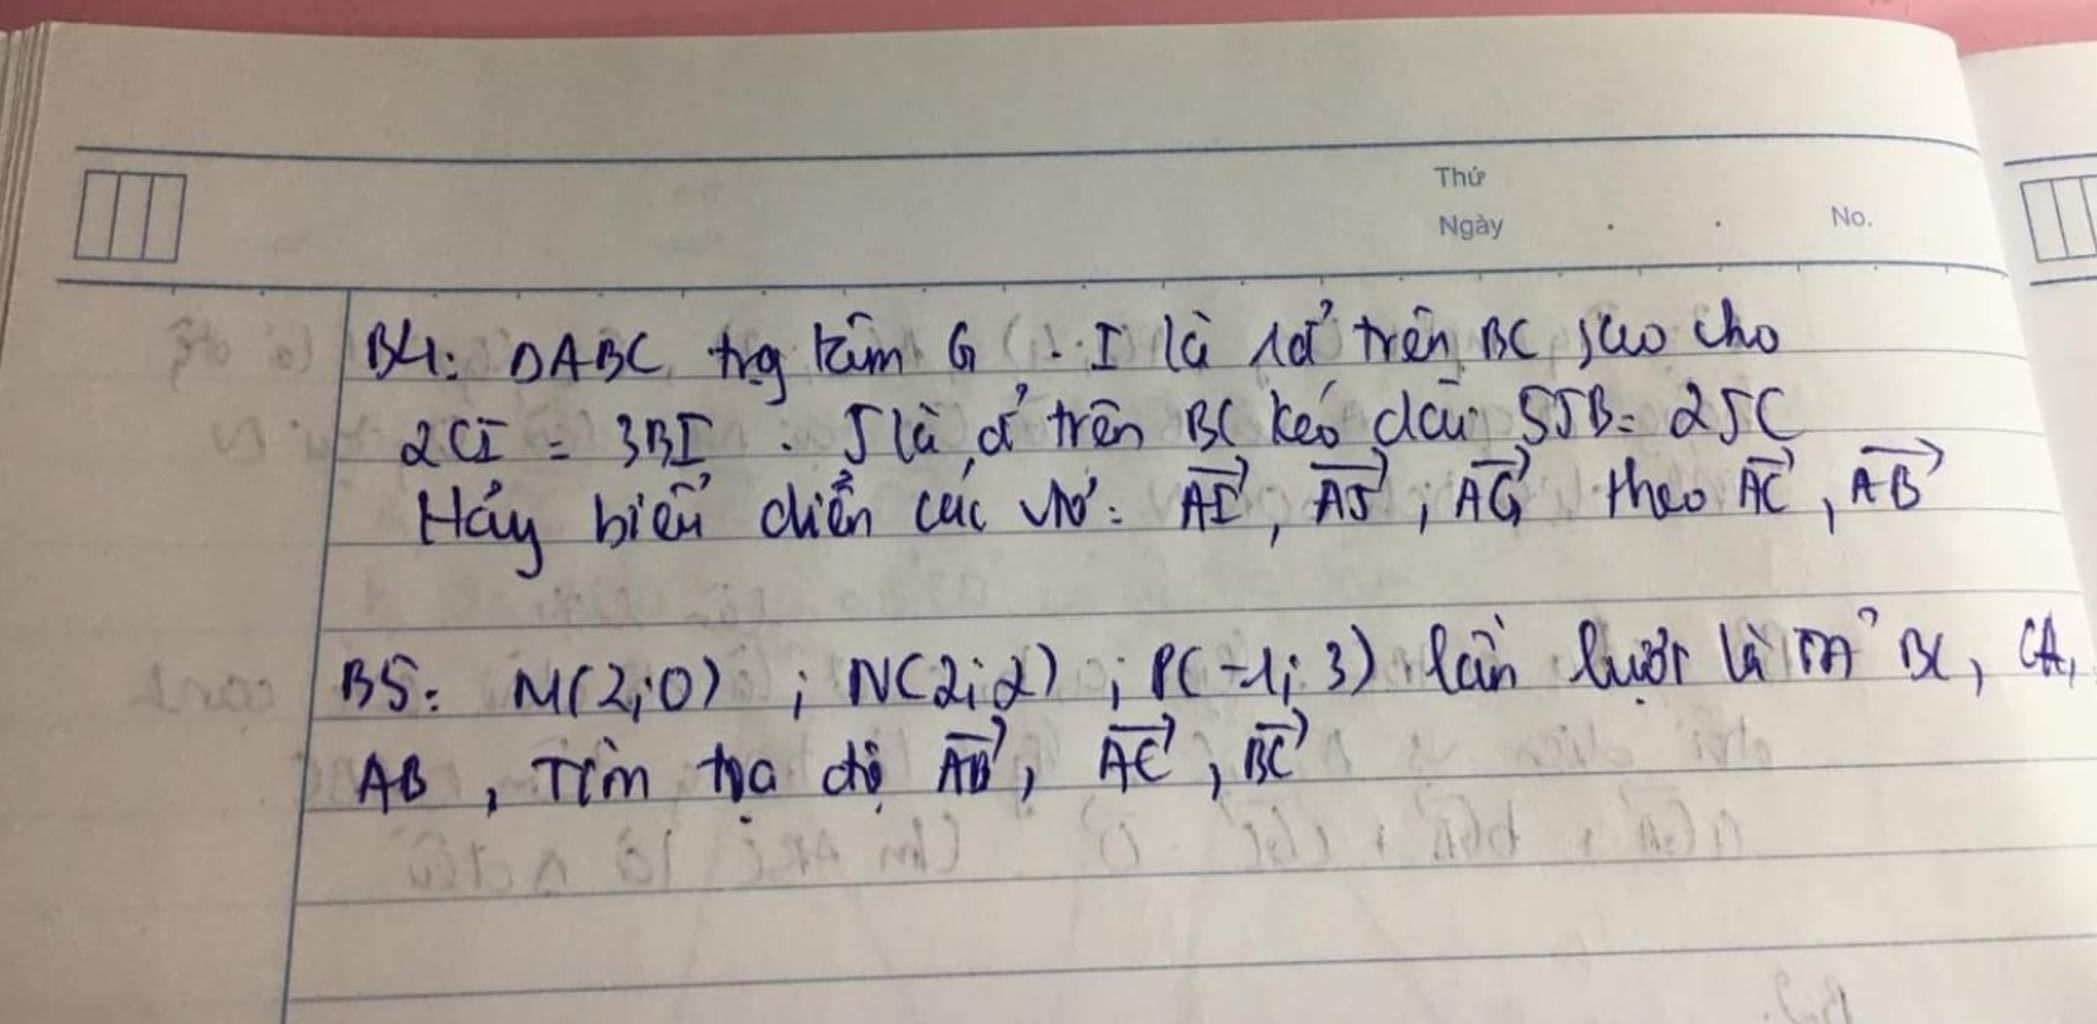 Thứ
Ngày . . No.
B4: ΔABC trg tâm G . I là 1đ' trên BC sao cho
2CI = 3BI . J là đ' trên BC kéo dài 5JB = 2JC
Hãy biểu diễn các vtơ: AI, AJ, AG theo AC, AB
B5: M(2;0) ; N(2;2) ; P(-1;3) lần lượt là BC, CA,
AB, Tìm tọa độ AB, AC, BC